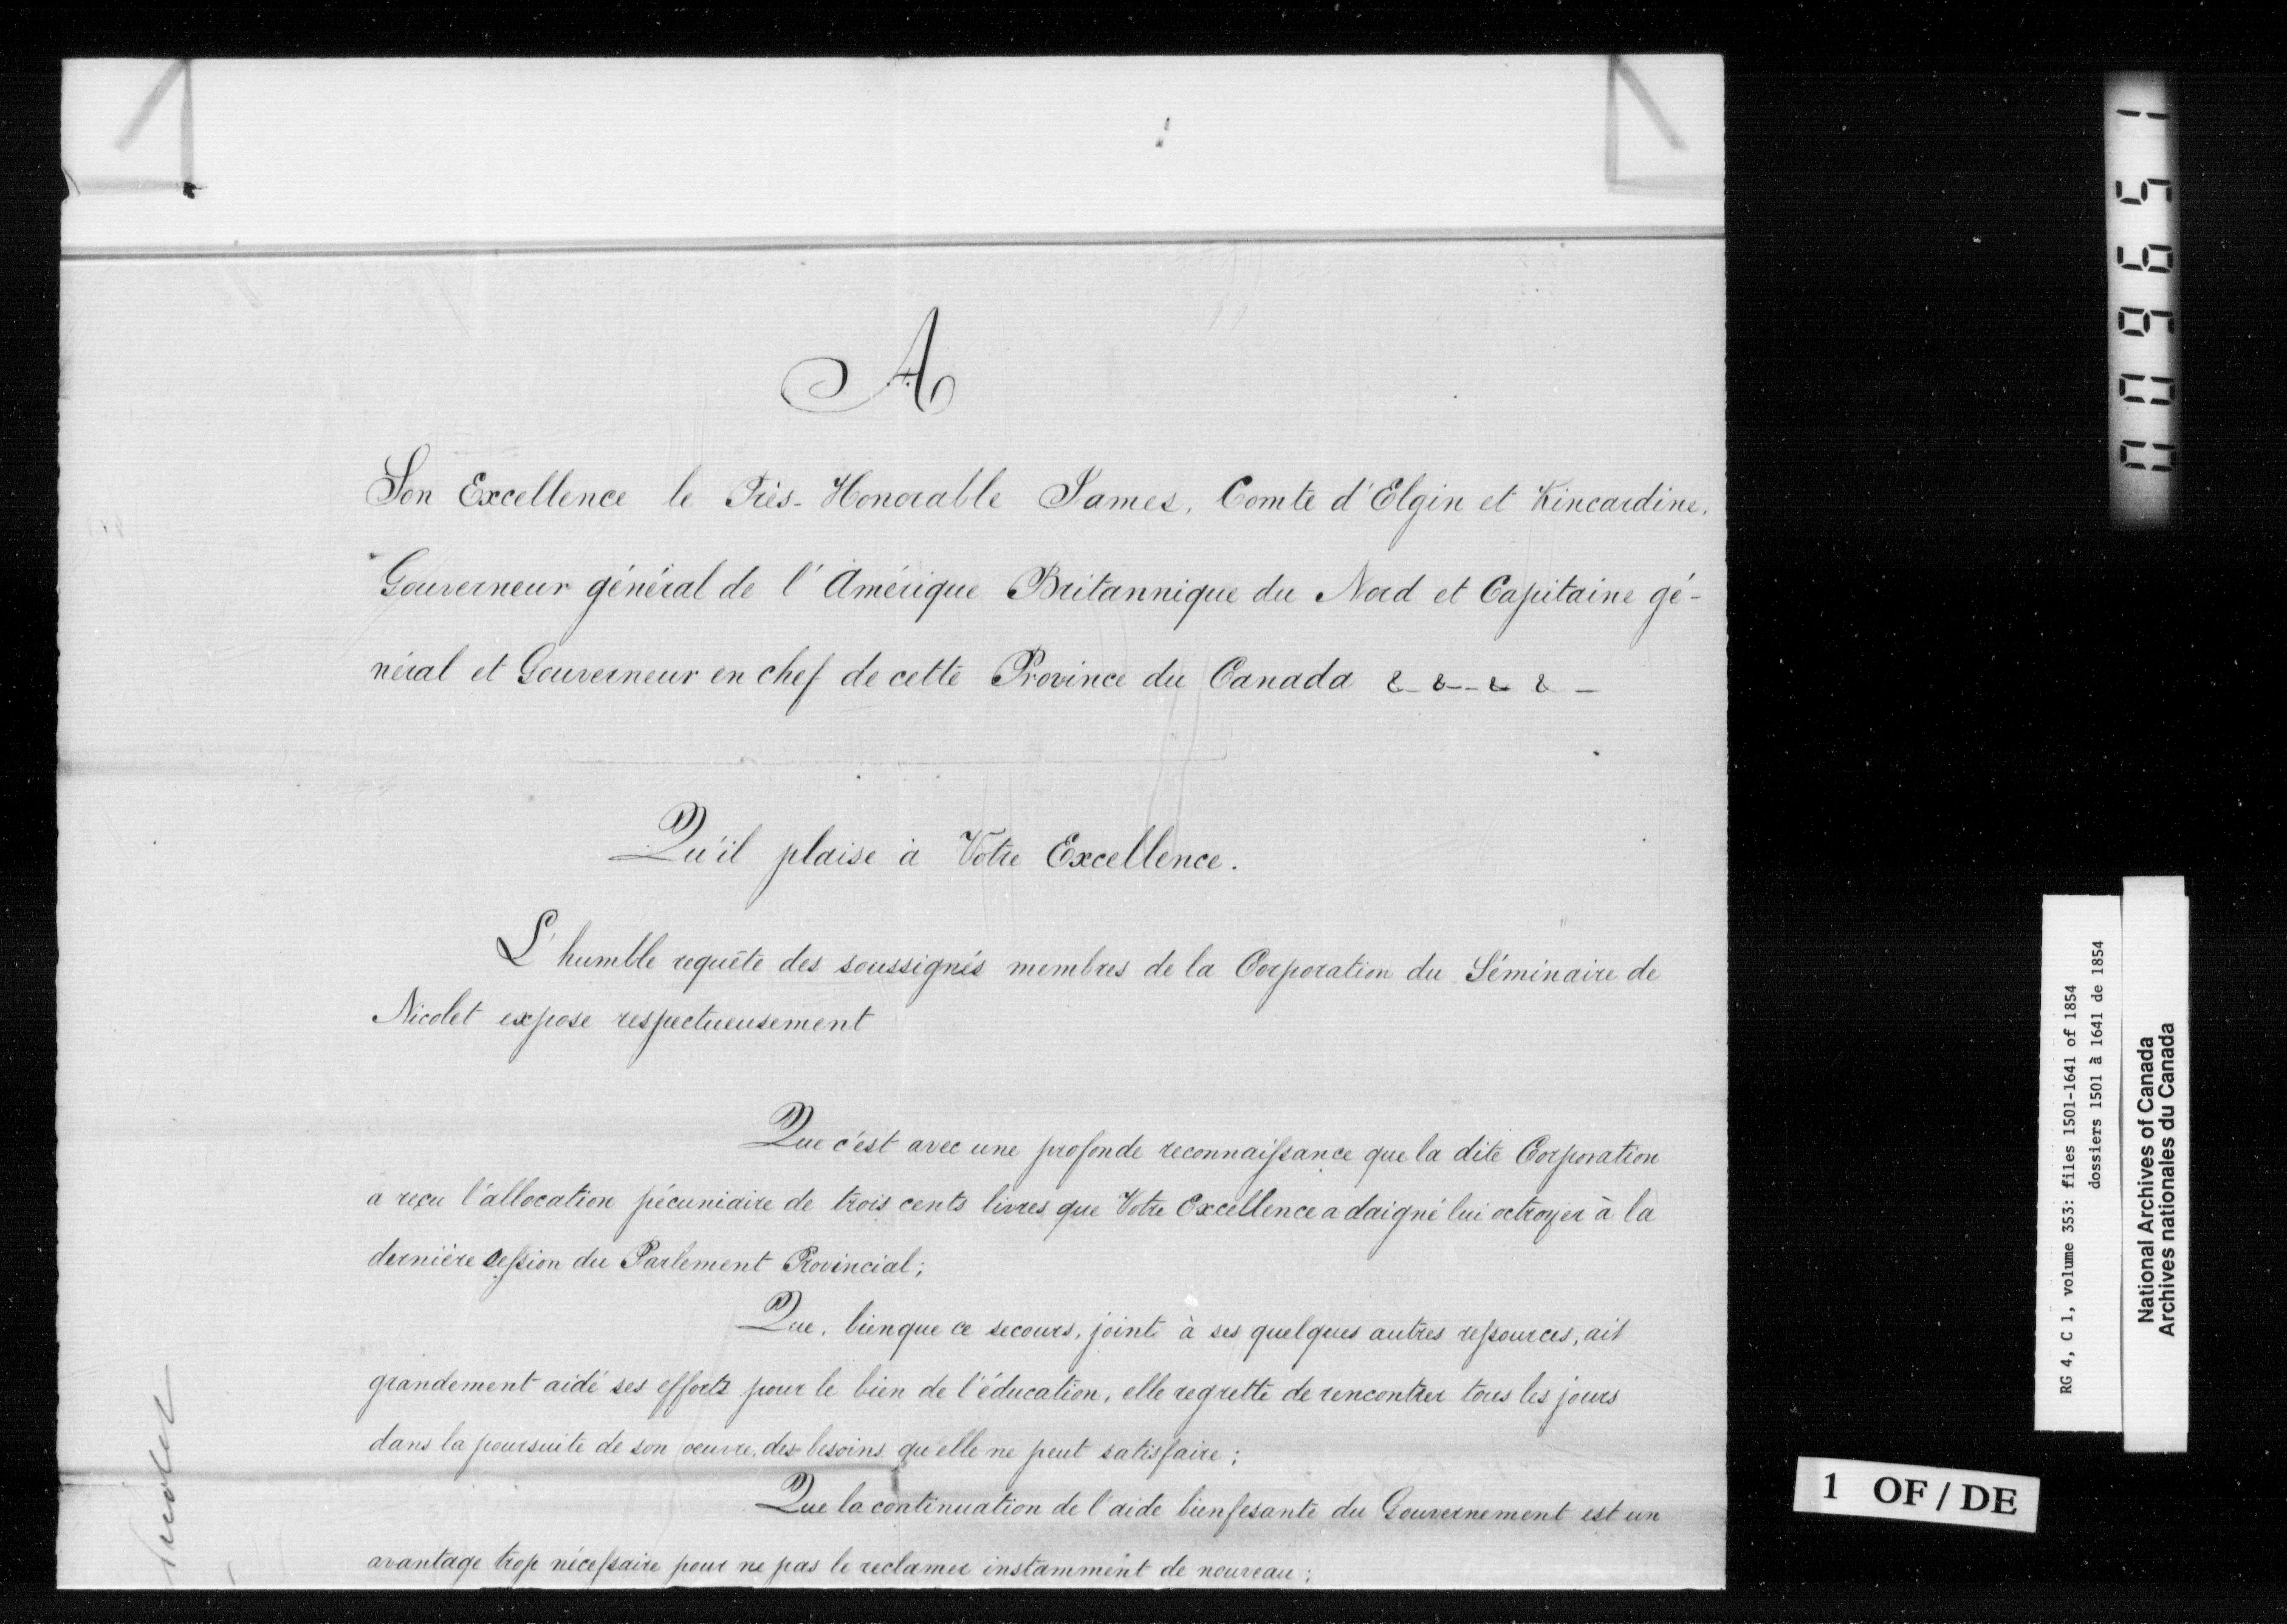 A
Son Excellence le Très-Honorable James, Comte d'Elgin et Kincardine,
Gouverneur général de l'Amérique Britannique du Nord et Capitaine gé-
néral et Gouverneur en chef de cette Province du Canada & & & &
Qu'il plaise à Votre Excellence.
L'humble requête des soussignés membres de la Corporation du Séminaire de
Nicolet expose respectueusement
Que c'est avec une profonde reconnaissance que la dite Corporation
a reçu l'allocation pécuniaire de trois cents livres que Votre Excellence a daigné lui octroyer à la
dernière session du Parlement Provincial;
Que, bienque ce secours, joint à ses quelques autres ressources, ait
grandement aidé ses efforts pour le bien de l'éducation, elle regrette de rencontrer tous les jours
dans la poursuite de son oeuvre, des besoins qu'elle ne peut satisfaire;
Que la continuation de l'aide bienfesante du Gouvernement est un
avantage trop nécessaire pour ne pas le reclamer instamment de nouveau;
Nicolet
009651
RG 4, C 1, volume 353: files 1501-1641 of 1854
dossiers 1501 à 1641 de 1854
National Archives of Canada
Archives nationales du Canada
1 OF / DE